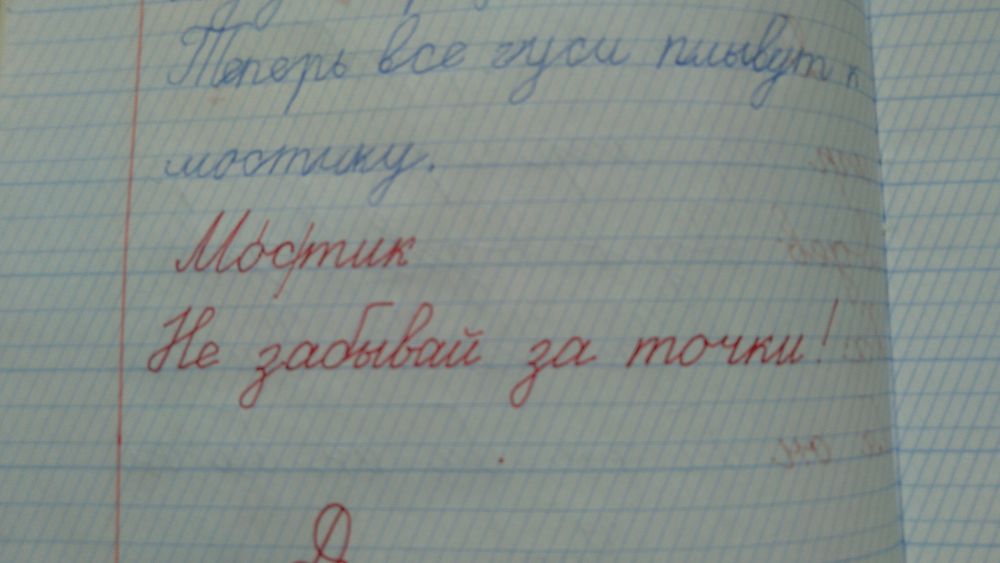 Теперь все гуси плывут к
мостику.
Мостик
Не забывай за точки!
Д